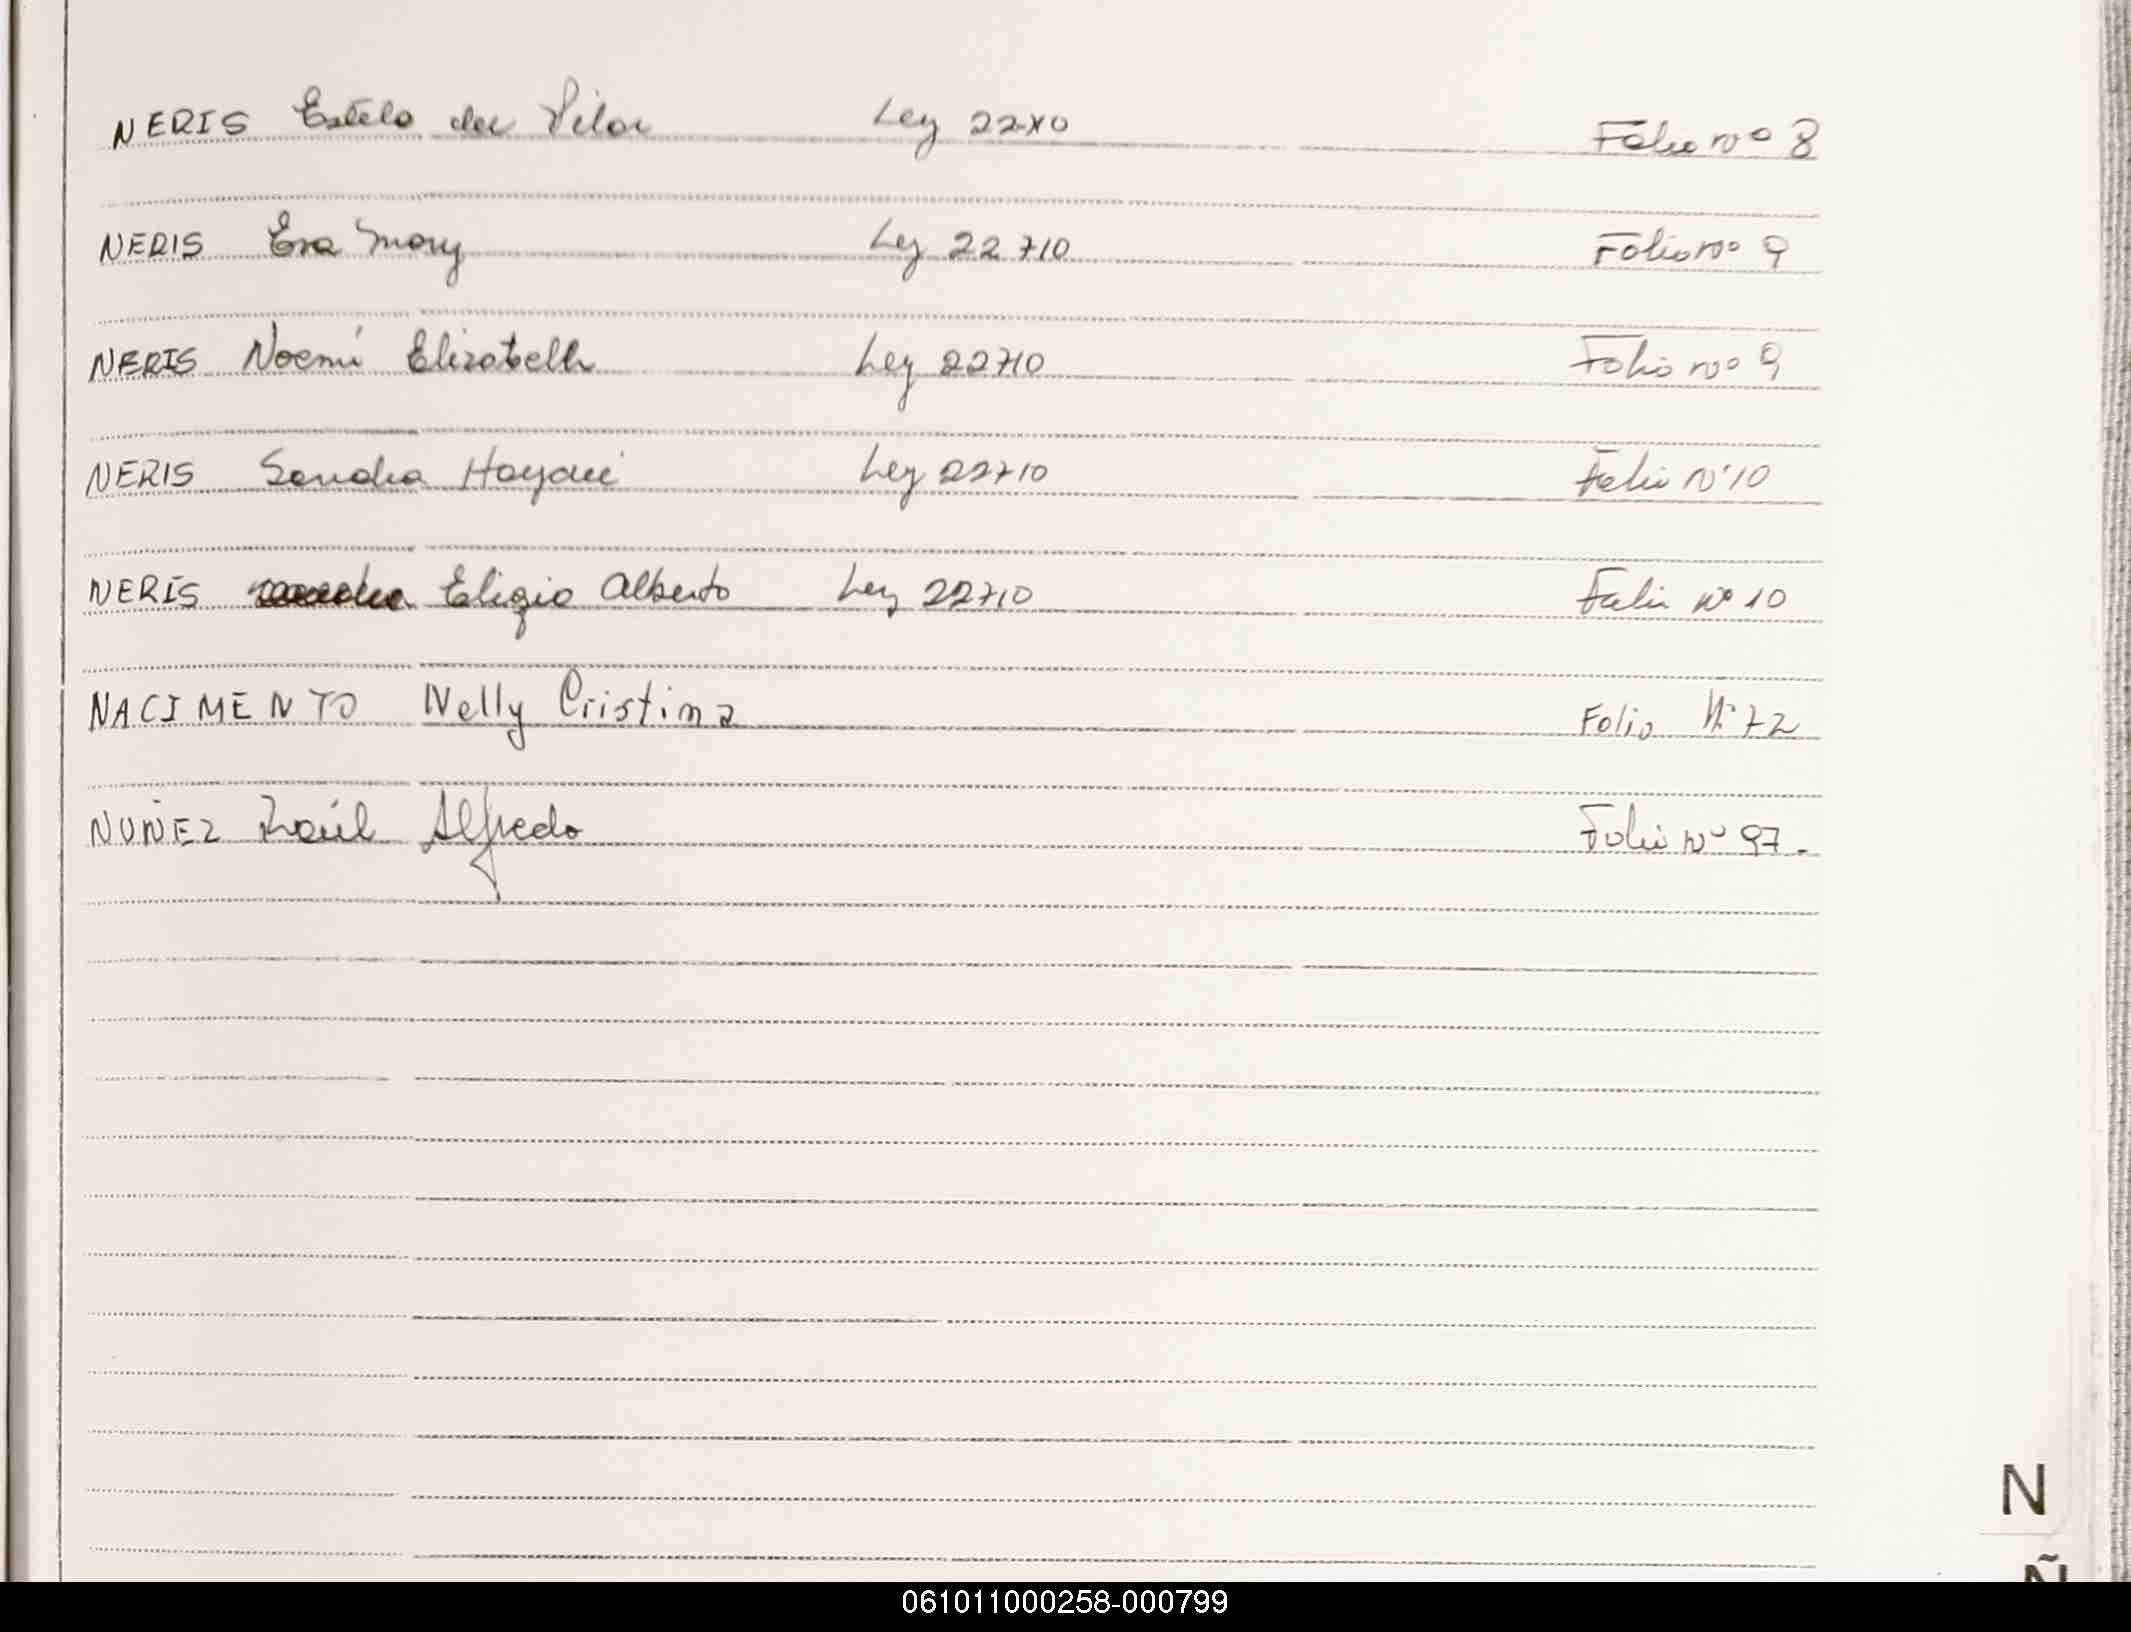 NERIS Estela del Pilar Ley 22710 Folio nº 8
NERIS Eva Mary Ley 22710 Folio nº 9
NERIS Noemí Elizabeth Ley 22710 Folio nº 9
NERIS Sandra Haydeé Ley 22710 Folio Nº 10
NERIS Eligio Alberto Ley 22710 Folio nº 10
NACIMENTO Nelly Cristina Folio Nº 72
NUÑEZ Raúl Alfredo Folio nº 97.
N
Ñ
061011000258-000799